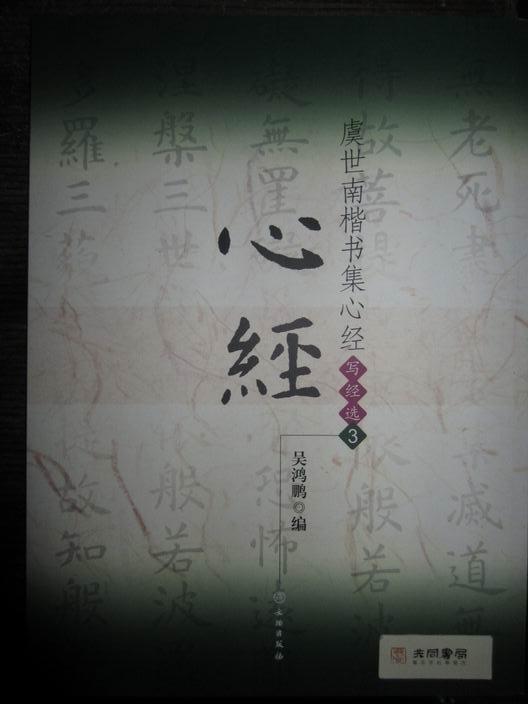 無老死盡
集滅道無
待故菩提
依般若波
虞世南楷书集心经
写经选
3
心經
吴鸿鹏◎编
文物出版社
礙無罣
恐怖
涅槃三世
般若波
多羅三藐
故知般
共同書局